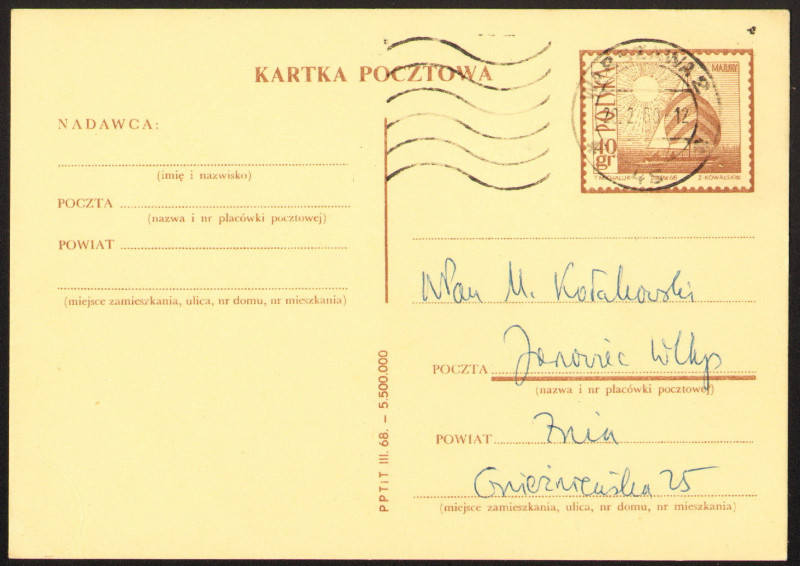 KARTKA POCZTOWA
NADAWCA:
(imię i nazwisko)
POCZTA
(nazwa i nr placówki pocztowej)
POWIAT
(miejsce zamieszkania, ulica, nr domu, nr mieszkania)
PPTiT III. 68. – 5.500.000
MAZURY
POLSKA
40
gr
Z·KOWALSKI
WPan M. Kołakowski
POCZTA Janowiec Wlkp
(nazwa i nr placówki pocztowej)
POWIAT Żnin
Gnieźnieńska 25
(miejsce zamieszkania, ulica, nr domu, nr mieszkania)